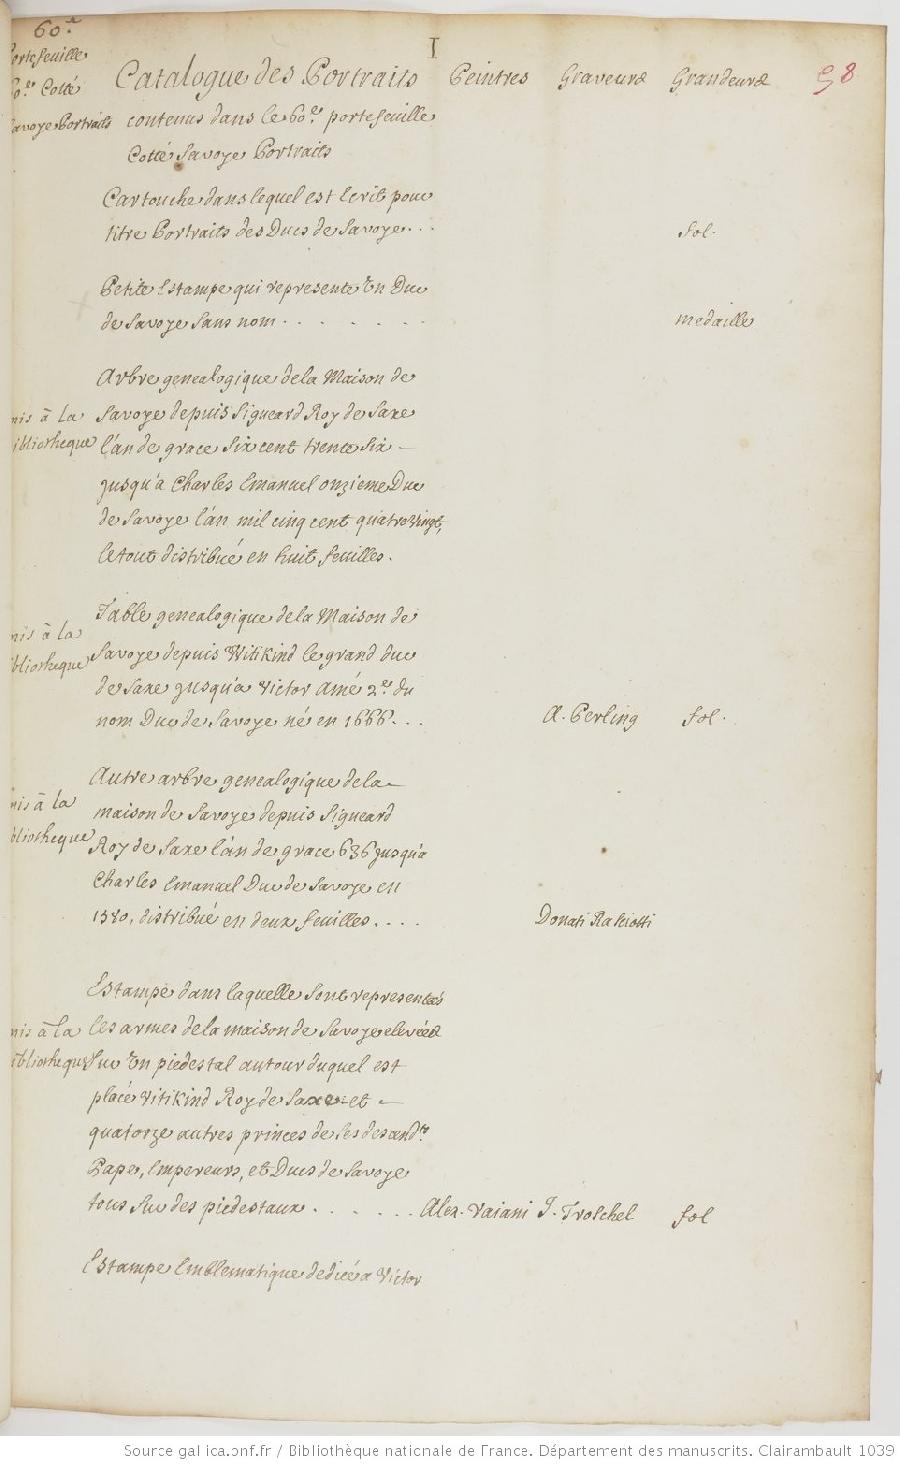 60.e
portefeuille
60.e Cotté
Savoye Portraits
I
Catalogue des Portraits Peintres Graveurs Grandeurs
98
contenus dans le 60.e portefeuille
Cotté Savoye Portraits
Cartouche dans lequel est Ecrit pour
titre Portraits des Ducs de Savoye... fol.
Petite Estampe qui represente Un Duc
de Savoye Sans nom . . . . . . medaille
mis à la
bibliotheque
Arbre genealogique de la Maison de
Savoye depuis Sigueard Roy de Saxe
l'an de grace Six cent trente Six
jusqu'a Charles Emanuel onzieme Duc
de Savoye l'an mil cinq cent quatre Vingt,
le tout distribué en huit feuilles.
mis à la
bibliotheque
Table genealogique de la Maison de
Savoye depuis Witikind le grand duc
de Saxe jusqu'a Victor Amé 2.e du
nom Duc de Savoye né en 1666... A. Perling fol.
mis à la
bibliotheque
Autre arbre genealogique de la
maison de Savoye depuis Sigueard
Roy de Saxe l'an de grace 636 jusqu'a
Charles Emanuel Duc de Savoye en
1580, distribué en deux feuilles.... Donati Rasciotti
mis à la
bibliotheque
Estampe dans laquelle Sont representés
les armes de la maison de Savoye elevées
Sur Un piedestal autour duquel est
placé Vitikind Roy de Saxe et
quatorze autres princes de Ses desand.ts
Pape, Empereurs, et Ducs de Savoye
tous Sur des piedestaux . . . . . . Alex. Vaiani J. Troschel fol
Estampe Emblematique dediée a Victor
Source gallica.bnf.fr / Bibliothèque nationale de France. Département des manuscrits. Clairambault 1039